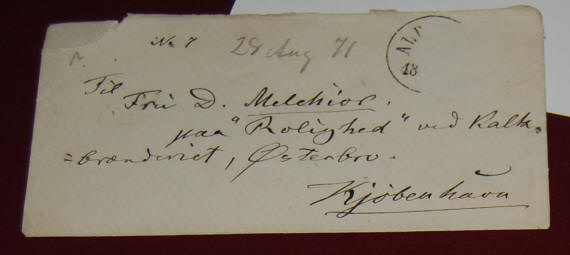 No 7 28 Aug 71
AL
18
Til
Fru D. Melchior.
paa "Rolighed" ved Kalk-
=brænderiet, Østerbro.
Kjøbenhavn